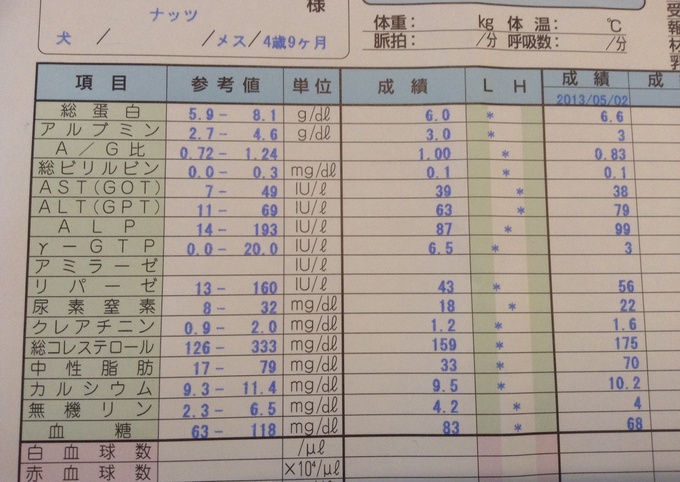 様
ナッツ
犬 / /メス/4歳9ヶ月
体重: kg 体温: ℃
脈拍: /分 呼吸数: /分
項目 参考値 単位 成績 L H 成績 成
2013/05/02
総蛋白 5.9- 8.1 g/dl 6.0 * 6.6
アルブミン 2.7- 4.6 g/dl 3.0 * 3
A/G比 0.72- 1.24 1.00 * 0.83
総ビリルビン 0.0- 0.3 mg/dl 0.1 * 0.1
AST(GOT) 7- 49 IU/ℓ 39 * 38
ALT(GPT) 11- 69 IU/ℓ 63 * 79
ALP 14- 193 IU/ℓ 87 * 99
γ-GTP 0.0- 20.0 IU/ℓ 6.5 * 3
アミラーゼ IU/ℓ
リパーゼ 13- 160 IU/ℓ 43 * 56
尿素窒素 8- 32 mg/dℓ 18 * 22
クレアチニン 0.9- 2.0 mg/dℓ 1.2 * 1.6
総コレステロール 126- 333 mg/dℓ 159 * 175
中性脂肪 17- 79 mg/dℓ 33 * 70
カルシウム 9.3- 11.4 mg/dℓ 9.5 * 10.2
無機リン 2.3- 6.5 mg/dℓ 4.2 * 4
血糖 63- 118 mg/dℓ 83 * 68
白血球数 /μℓ
赤血球数 ×10⁴/μℓ